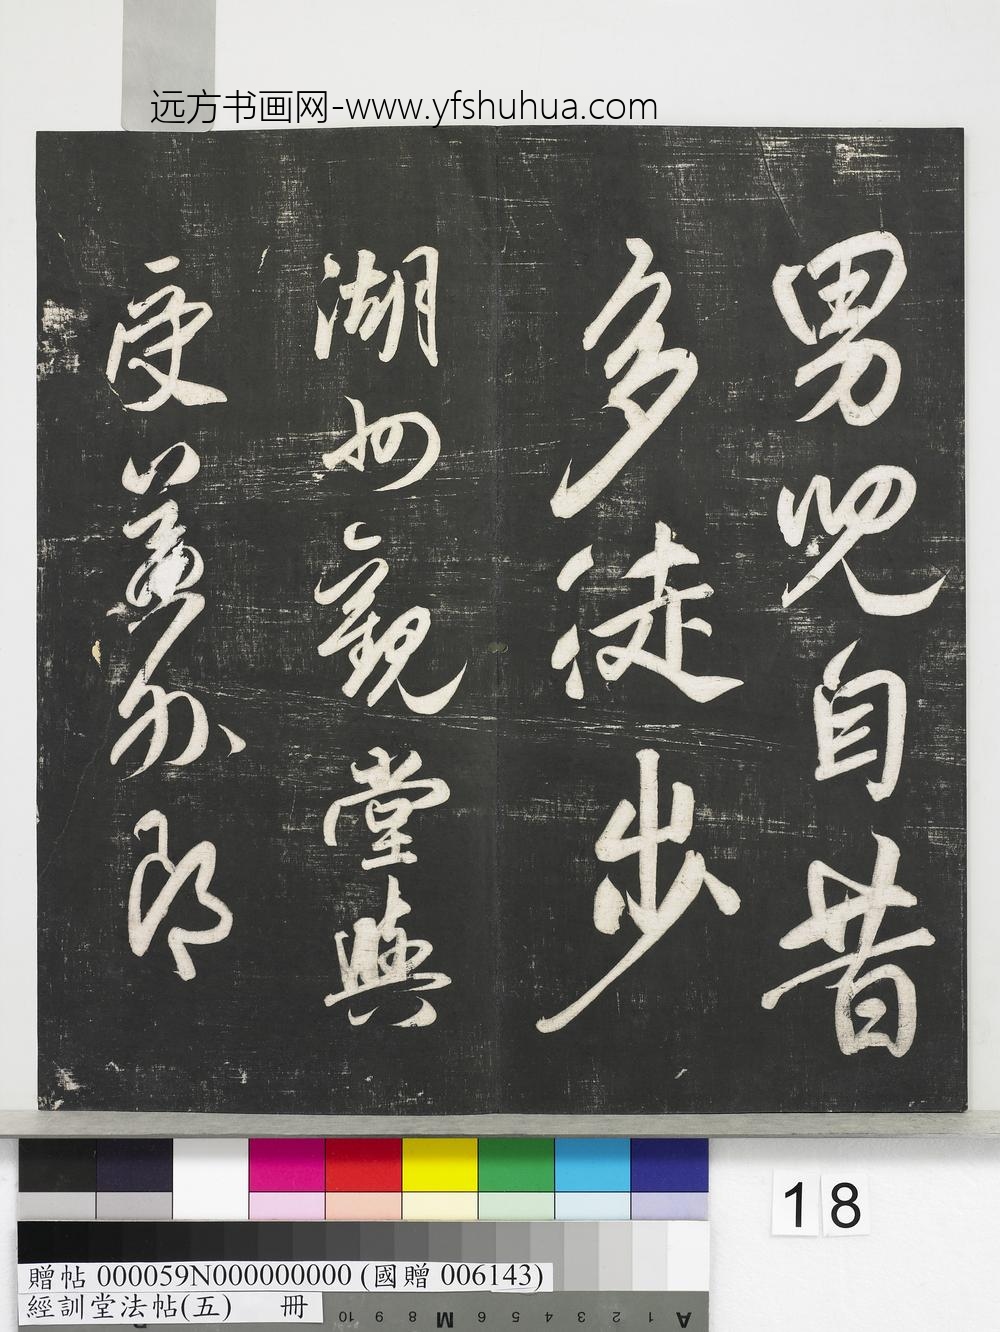 远方书画网-www.yfshuhua.com
男児自昔
多徒步
湖州觀堂與
受益外郎
18
贈帖 000059N000000000 (國贈 006143)
經訓堂法帖(五) 冊
10 9 8 M 6 5 4 3 2 1 A